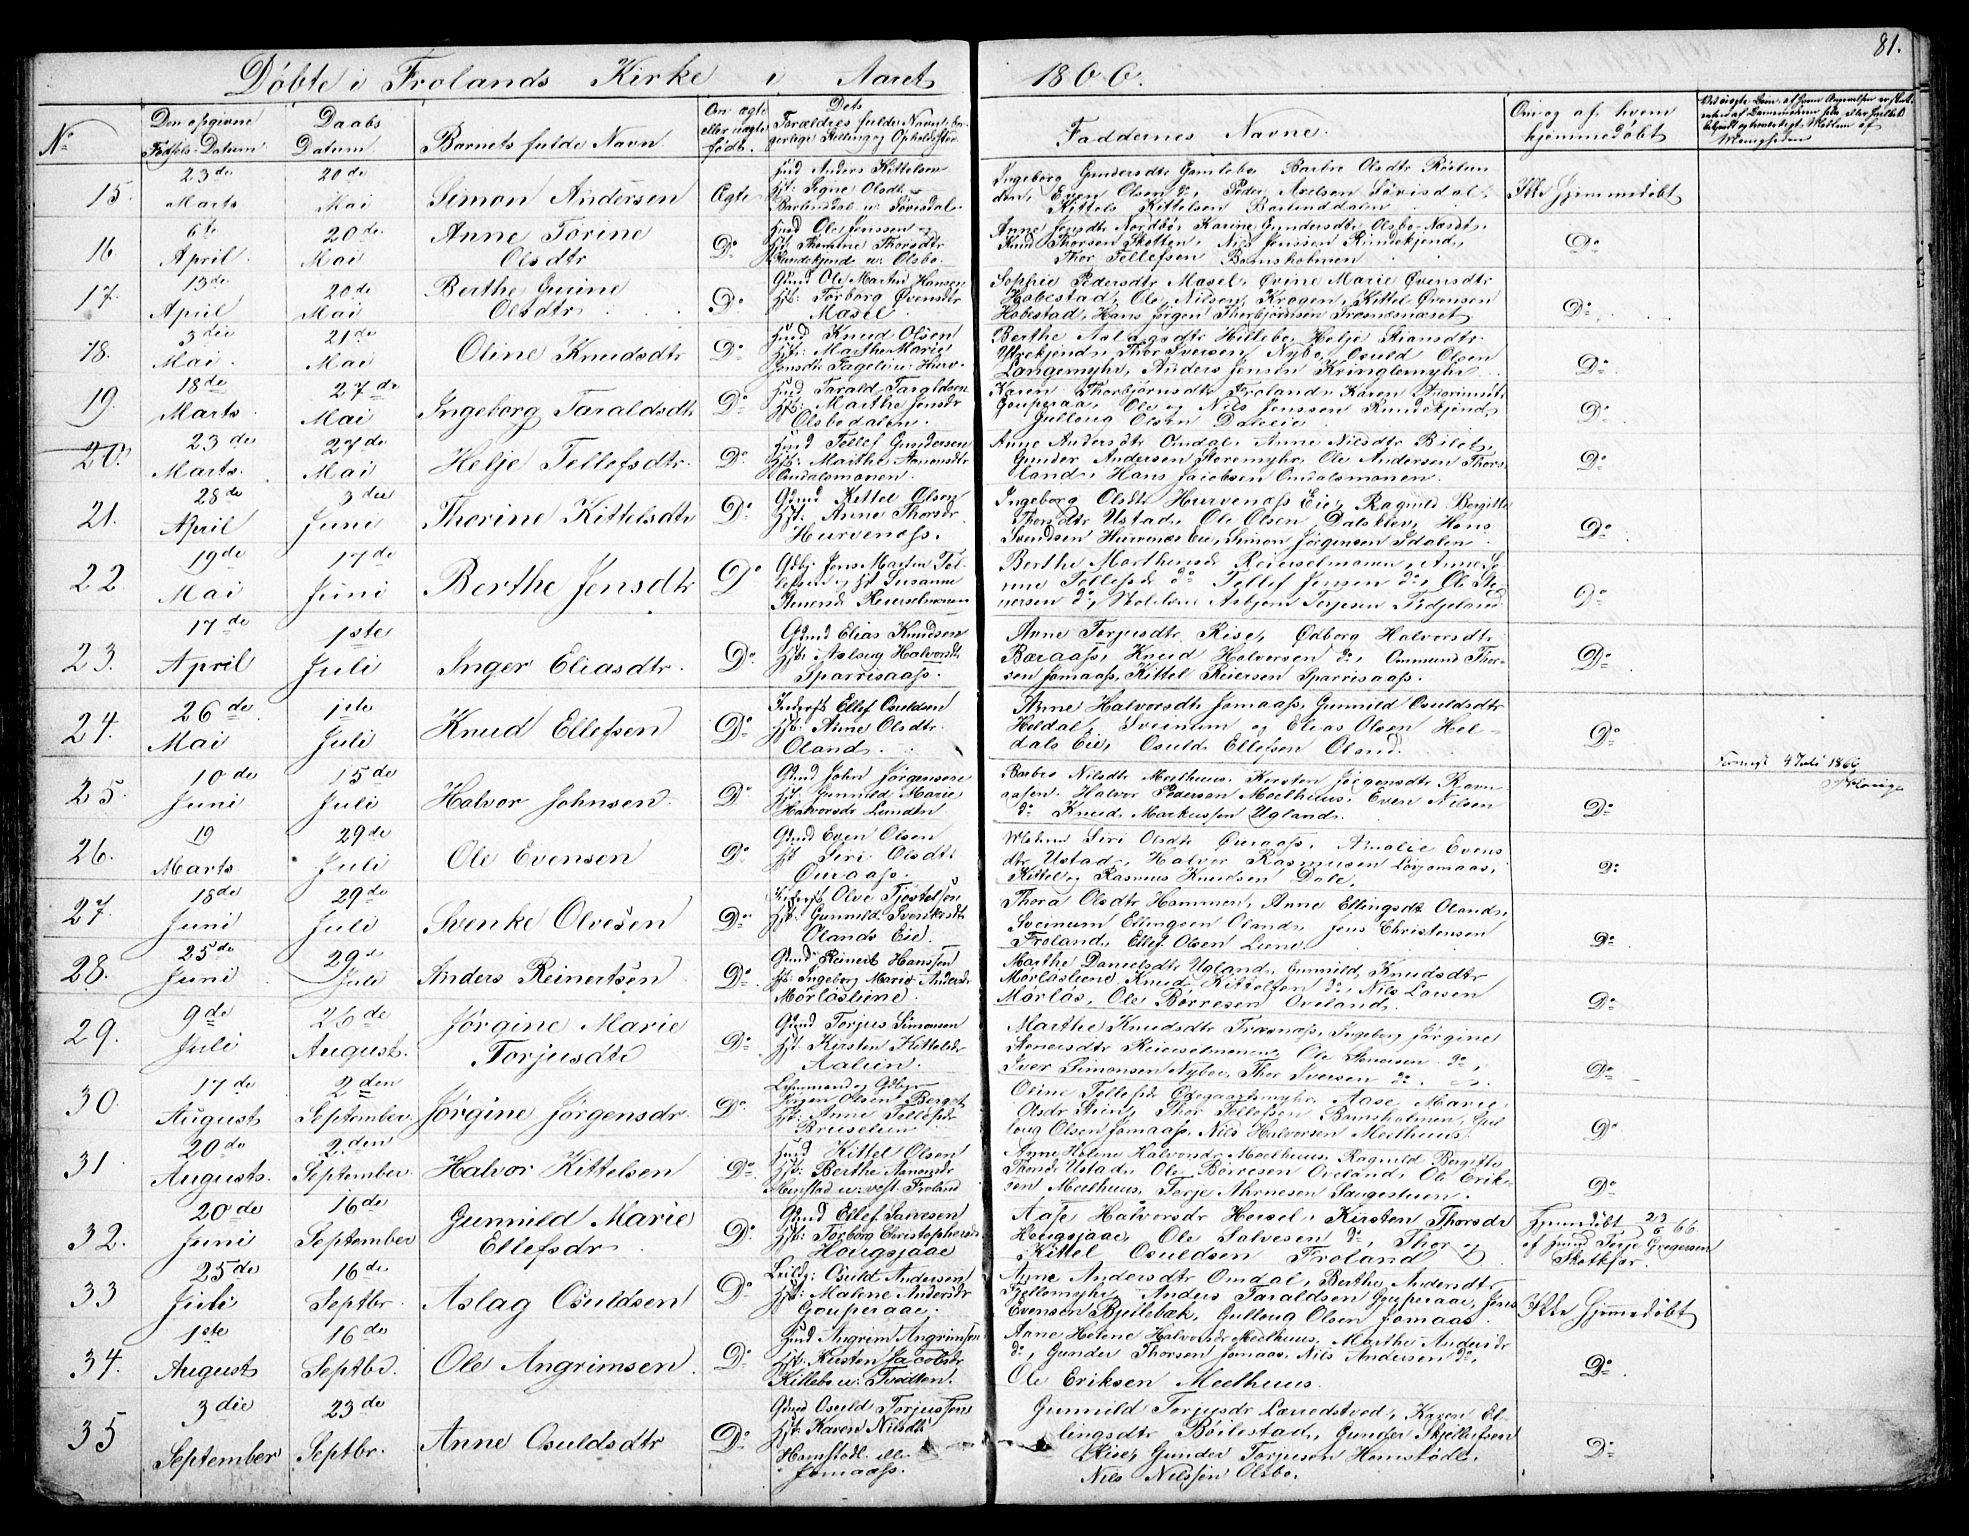 81.
Døbte i Frolands Kirke i Aaret 1866.
No
Den opgivne Fødsels-Datum
Daabs Datum
Barnets fulde Navn
Om ægte eller uægte født.
Dets Forældres fulde Navn, borgerlige Stilling og Opholdssted
Faddernes Navne.
Om og af hvem hjemmedøbt
15. 23de Marts 20de Mai Simon Andersen Ægte
Huusd Anders Kittelsen
Hst: Signe Olsdtr
Barlindal u: Sørisdal.
Ingeborg Gundersdtr Gamlebo Barbro Olsdtr
Even Olsen do, Peder Axelsen Sørisdal,
Kittel Kittelsen Barlinddalen
Ikke Hjemmedøbt
16 6te April 20de Mai Anne Torine Olsdtr Do
Ole Jenssen
Thomine Thorsdtr
Rundekjend u: Olsbo.
Anne Jensdtr Nordbø, Karine Gundersdtr Olsbo
Knud Thorsen Skotten, Nils Jenssen Rundekjend,
Thor Tellefsen Bomsholmen
Do
17. 13de April 20de Mai Berthe Gurine Olsdtr Do
Gmd Ole Martin Hansen
Hst: Torborg Øvensdtr
Masel
Sophie Pedersdtr Masel, Øvine Marie Øvensdtr
Hobestad, Ole Nilsen Kragen, Kittel Øvensen
Hobestad, Hans Jørgen Thorbjørnsen Træsnæsnæset
Do
18. 3die Mai 21de Mai Oline Knudsdtr Do
Huusd Knud Olsen
Hst: Marthe Marie
Berthe Aslagsdtr Hillebo, Helje Stiansdtr
Ytrekjend, Thor Iversen Nybo, Osuld Olsen
Langemyhr, Anders Jensen Kringlemyhr
Do
19. 18de Marts 27de Mai Ingeborg Taraldsdtr Do
Huusd Tarald Taraldsen
Hst: Marthe Jensdr
Olsbodalen.
Karen Thorbjørnsdtr Froland, Karen
Gouperaa, Ole og Nils Jenssen Rundekjend,
Gulloug Olsen Dalveie
Do
20. 23de Marts 27de Mai Helje Tellefsdtr. Do
Huusd Tellef Gundersen
Hst: Marthe Aanonsdtr
Omdalsmonen.
Anne Andersdtr Omdal, Anne Nilsdtr
Gunder Andersen Storemyhr, Ole Andersen Thors-
land, Hans Jacobsen Omdalsmonen.
Do
21. 28de April 3die Juni Thorine Kittelsdtr Do
Gmd Kittel Olsen
Hst: Anne Thorsdr
Hurvenæss.
Ingeborg Olsdtr Hurvenæss Eie, Ragnild Bergitte
Thorsdtr Ustad, Ole Olsen Dalskleiv, Hans
Svendsen Hurvenæs Eie, Simon Jørgensen Idalen
Do
22 19de Mai 17de Juni Berthe Jensdtr Do
Gdbr Jens Martin Tel-
lefsen og Hst Susanne
Stenersd Reierselmonen
Berthe Marthensd Reierselmonen,
Tellefsd do Tellef Jensen do, Ole Ste-
nersen do, Asbjørn Terjesen Fidjeland
Do
23. 17de April 1ste Juli Inger Eliasdtr. Do
Gmd Elias Knudsen
Hst: Aslaug Halvorsdtr
Sparrisaass.
Anne Torjusdtr Rise, Ødborg Halvorsdtr
Boraass, Knud Halvorsen do, Ommund Thor-
sen Jomaass, Kittel Reiersen Sparrisaass.
Do
24. 26de Mai 1ste Juli Knud Ellefsen Do
Ellef Osuldsen
Hst: Anne Olsdtr
Oland.
Anne Halvorsdtr Jomaass, Gunnild Osuldsdtr
Heldal, Sveinum og Elias Olsen Hel-
dals Eie, Osuld Ellefsen Oland.
Do
25. 10de Juni 15de Juli Halvor Johnsen. Do
Gmd John Jørgensen
Hst: Gunnild Marie
Halvorsdr Lunden
Barbro Nilsdtr Moelhuus, Kirsten Jørgensdtr Ravn-
aasen. Halvor Pedersen Moelhuus, Even Nilsen
do Knud Markussen Ugland.
Do
4 Juli 1866
26. 19 Marts. 29de Juli Ole Evensen Do
Gmd Even Olsen
Hst Siri Olsdtr
Øuraass.
Siri Olsdtr Øuraass, Amalie Evens-
dtr Ustad, Halvor Rasmusen Lørjomaas,
Kittel og Rasmus Knudsen Dale,
Do
27. 18de Juni 29de Juli Svenke Olvesen Do
Olve Tjøstelsen
Hst: Gunnild Svenkesdtr
Olands Eie.
Thora Olsdtr Hammen, Anne Ellingsdt Oland,
Sveinum Ellingsen Oland, Jens Christensen
Froland, Ellef Olsen Liene
Do
28. 25de Juni 29de Juli Anders Reinertsen Do
Gmd Reinert Hanssen
Hst: Ingeborg Marie Andersdr
Mørlåsliene.
Marthe Danielsdtr Ugland, Gunnild Knudsdtr
Mørlåsliene, Knud Kittelsen do, Nils Larsen
Mørlås, Ole Børresen Oveland,
Do
29. 9de Juli 26de August. Jørgine Marie Torjusdtr Do
Gmd Torjus Simonsen
Hst: Kirsten Kittelsdr
Aalien.
Marthe Knudsdtr Træsnæss, Ingeborg Jørgine
Stenersdtr Reierselmonen, Ole Stenersen do,
Iver Simonsen Nyboe, Thor Iversen do.
Do
30. 17de August 2den September. Jørgine Jørgensdr. Do
Lehnsmand og Gdbr
Jørgen Olsen Berget
Hst: Anne Tellefsdr
Bruselien
Oline Tellefsd Ødegaardsmyhr, Aase Marie
Olsdr Stien, Thor Tellefsen Bomsholmen, Gul-
loug Olsen Jomaass, Nils Halvorsen Meelhuus
Do
31. 20de Augusts. 2den September. Halvor Kittelsen Do
Huusd Kittel Olsen
Hst: Berthe Aanonsdr
Mindstad u: vest Froland
Anne Helene Halvorsdr Moelhuus, Ragnild Bergitte
Thorsdr Ustad, Ole Børresen Oveland, Ole Erik-
sen Meelhuus, Terje Ahrnesen Saugestuen.
Do
32. 20de Juni 16de September Gunnild Marie Ellefsdr Do
Gmd Ellef Salvesen
Hst: Torborg Christophersdr
Hougsjaae
Aase Halvorsdr Heisel, Kirsten Thorsdr
Hougsjaae, Ole Salvesen do, Thor og
Kittel Osuldsen Froland
Hjemmedøbt 23/6 66
af Huusd Terje Gregersen
Skatkjær.
33 25de Juli 16de Septbr. Aslag Osuldsen Do
Leildg: Osuld Andersen
Hst: Malene Andersdr
Gouperaae.
Anne Andersdtr Omdal, Berthe Andersdtr
Fjellemyhr, Anders Taraldsen Gouperaae, Jens
Evensen Bjellebæk, Gulloug Olsen Jomaas.
Ikke Hjemmedøbt
34. 1ste August 16de Septbr Ole Angrimsen Do
Huusd Angrim Angrimsen
Hst: Kirsten Jacobsdr
Killebo u: Tvedten.
Anne Helene Halvorsdr Meelhuus, Marthe Andersdr
do, Gunder Thorsen Jomaas, Nils Andersen do,
Ole Eriksen Meelhuus.
Do
35 3die September 23de Septbr. Anne Osuldsdtr Do
Gmd Osuld Torjussen
Hst: Karen Nilsdtr
Homstøl ell:
Jomaass.
Gunnild Torjusdr Lauvdstved, Karen El-
lingsdtr Bøilestad, Gunder Skjellufsen
Rise, Gunder Torjusen Homstøl,
Nils Nilssen Olsbo.
Do